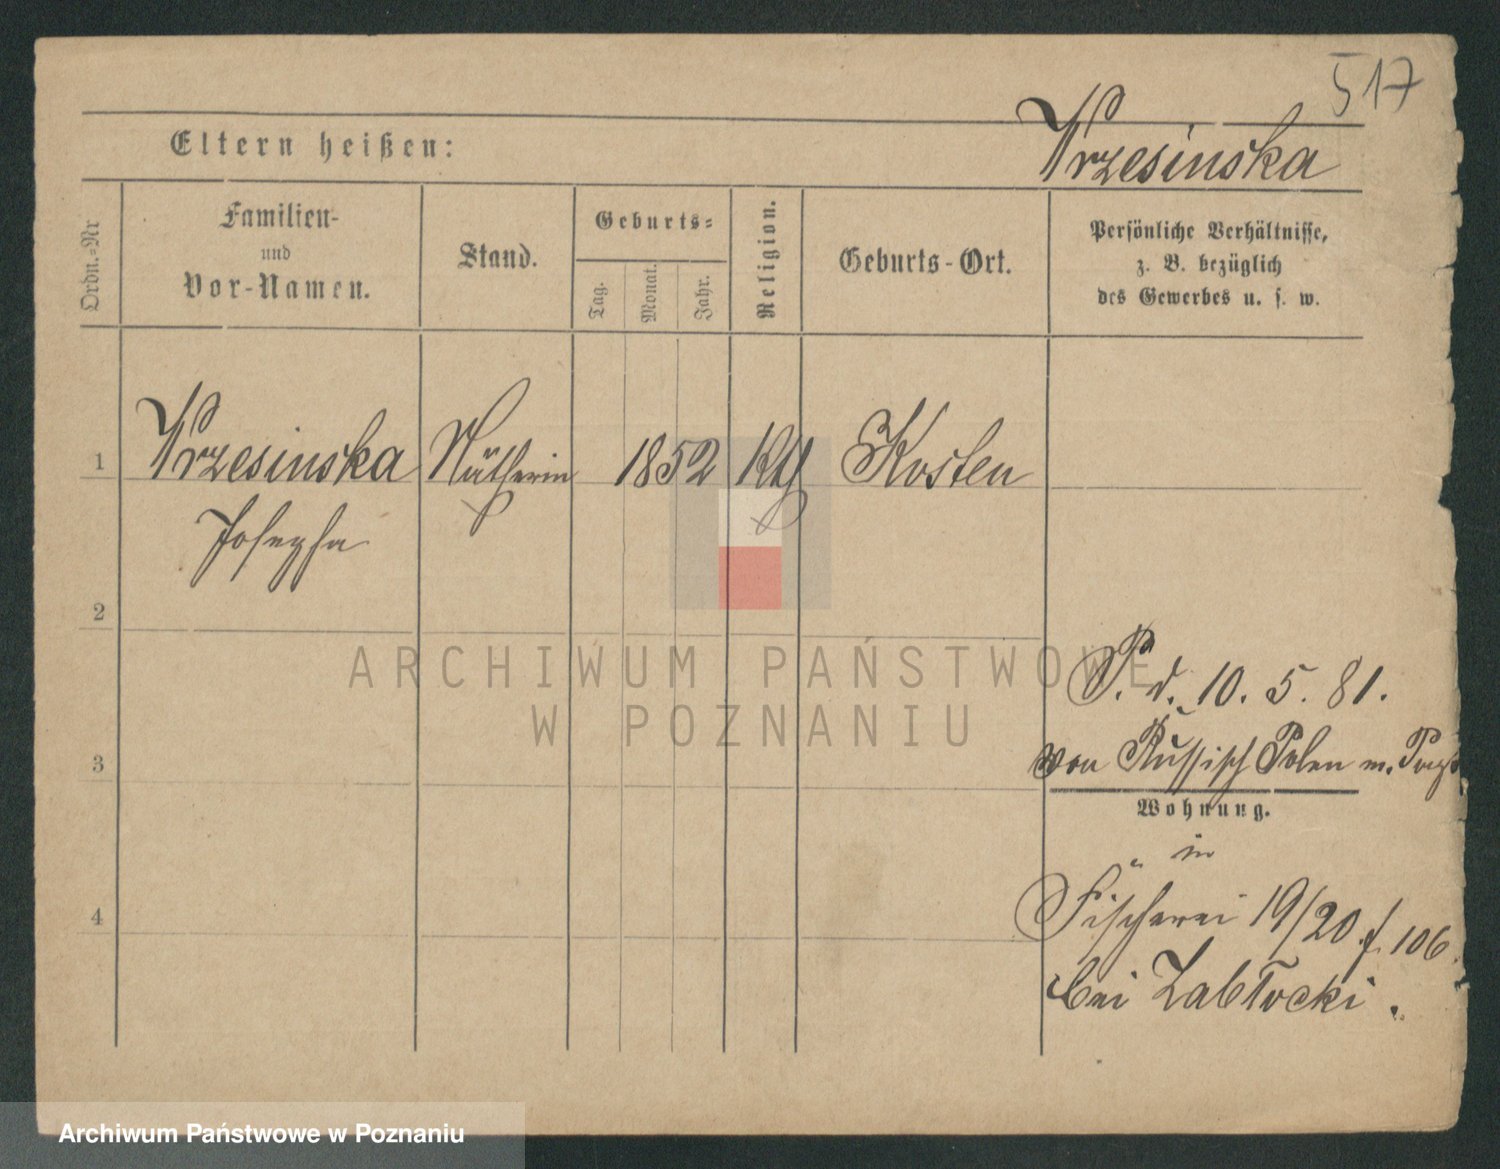 517
Wrzesinska
Eltern heißen:
Ordn.=Nr
Familien-
und
Vor-Namen.
Stand.
Geburts=
Tag.
Monat.
Jahr.
Religion.
Geburts-Ort.
Persönliche Verhältnisse,
z. B. bezüglich
des Gewerbes u. s. w.
1 Wrzesinska Nätherin 1852 Kth Kosten
Josepha
2
ARCHIWUM PAŃSTWOWE
W POZNANIU
P. d. 10. 5. 81.
3
von Russisch Polen m.
Wohnung.
in
4
Fischerei 19/20 f 106.
bei Zabłocki.
Archiwum Państwowe w Poznaniu